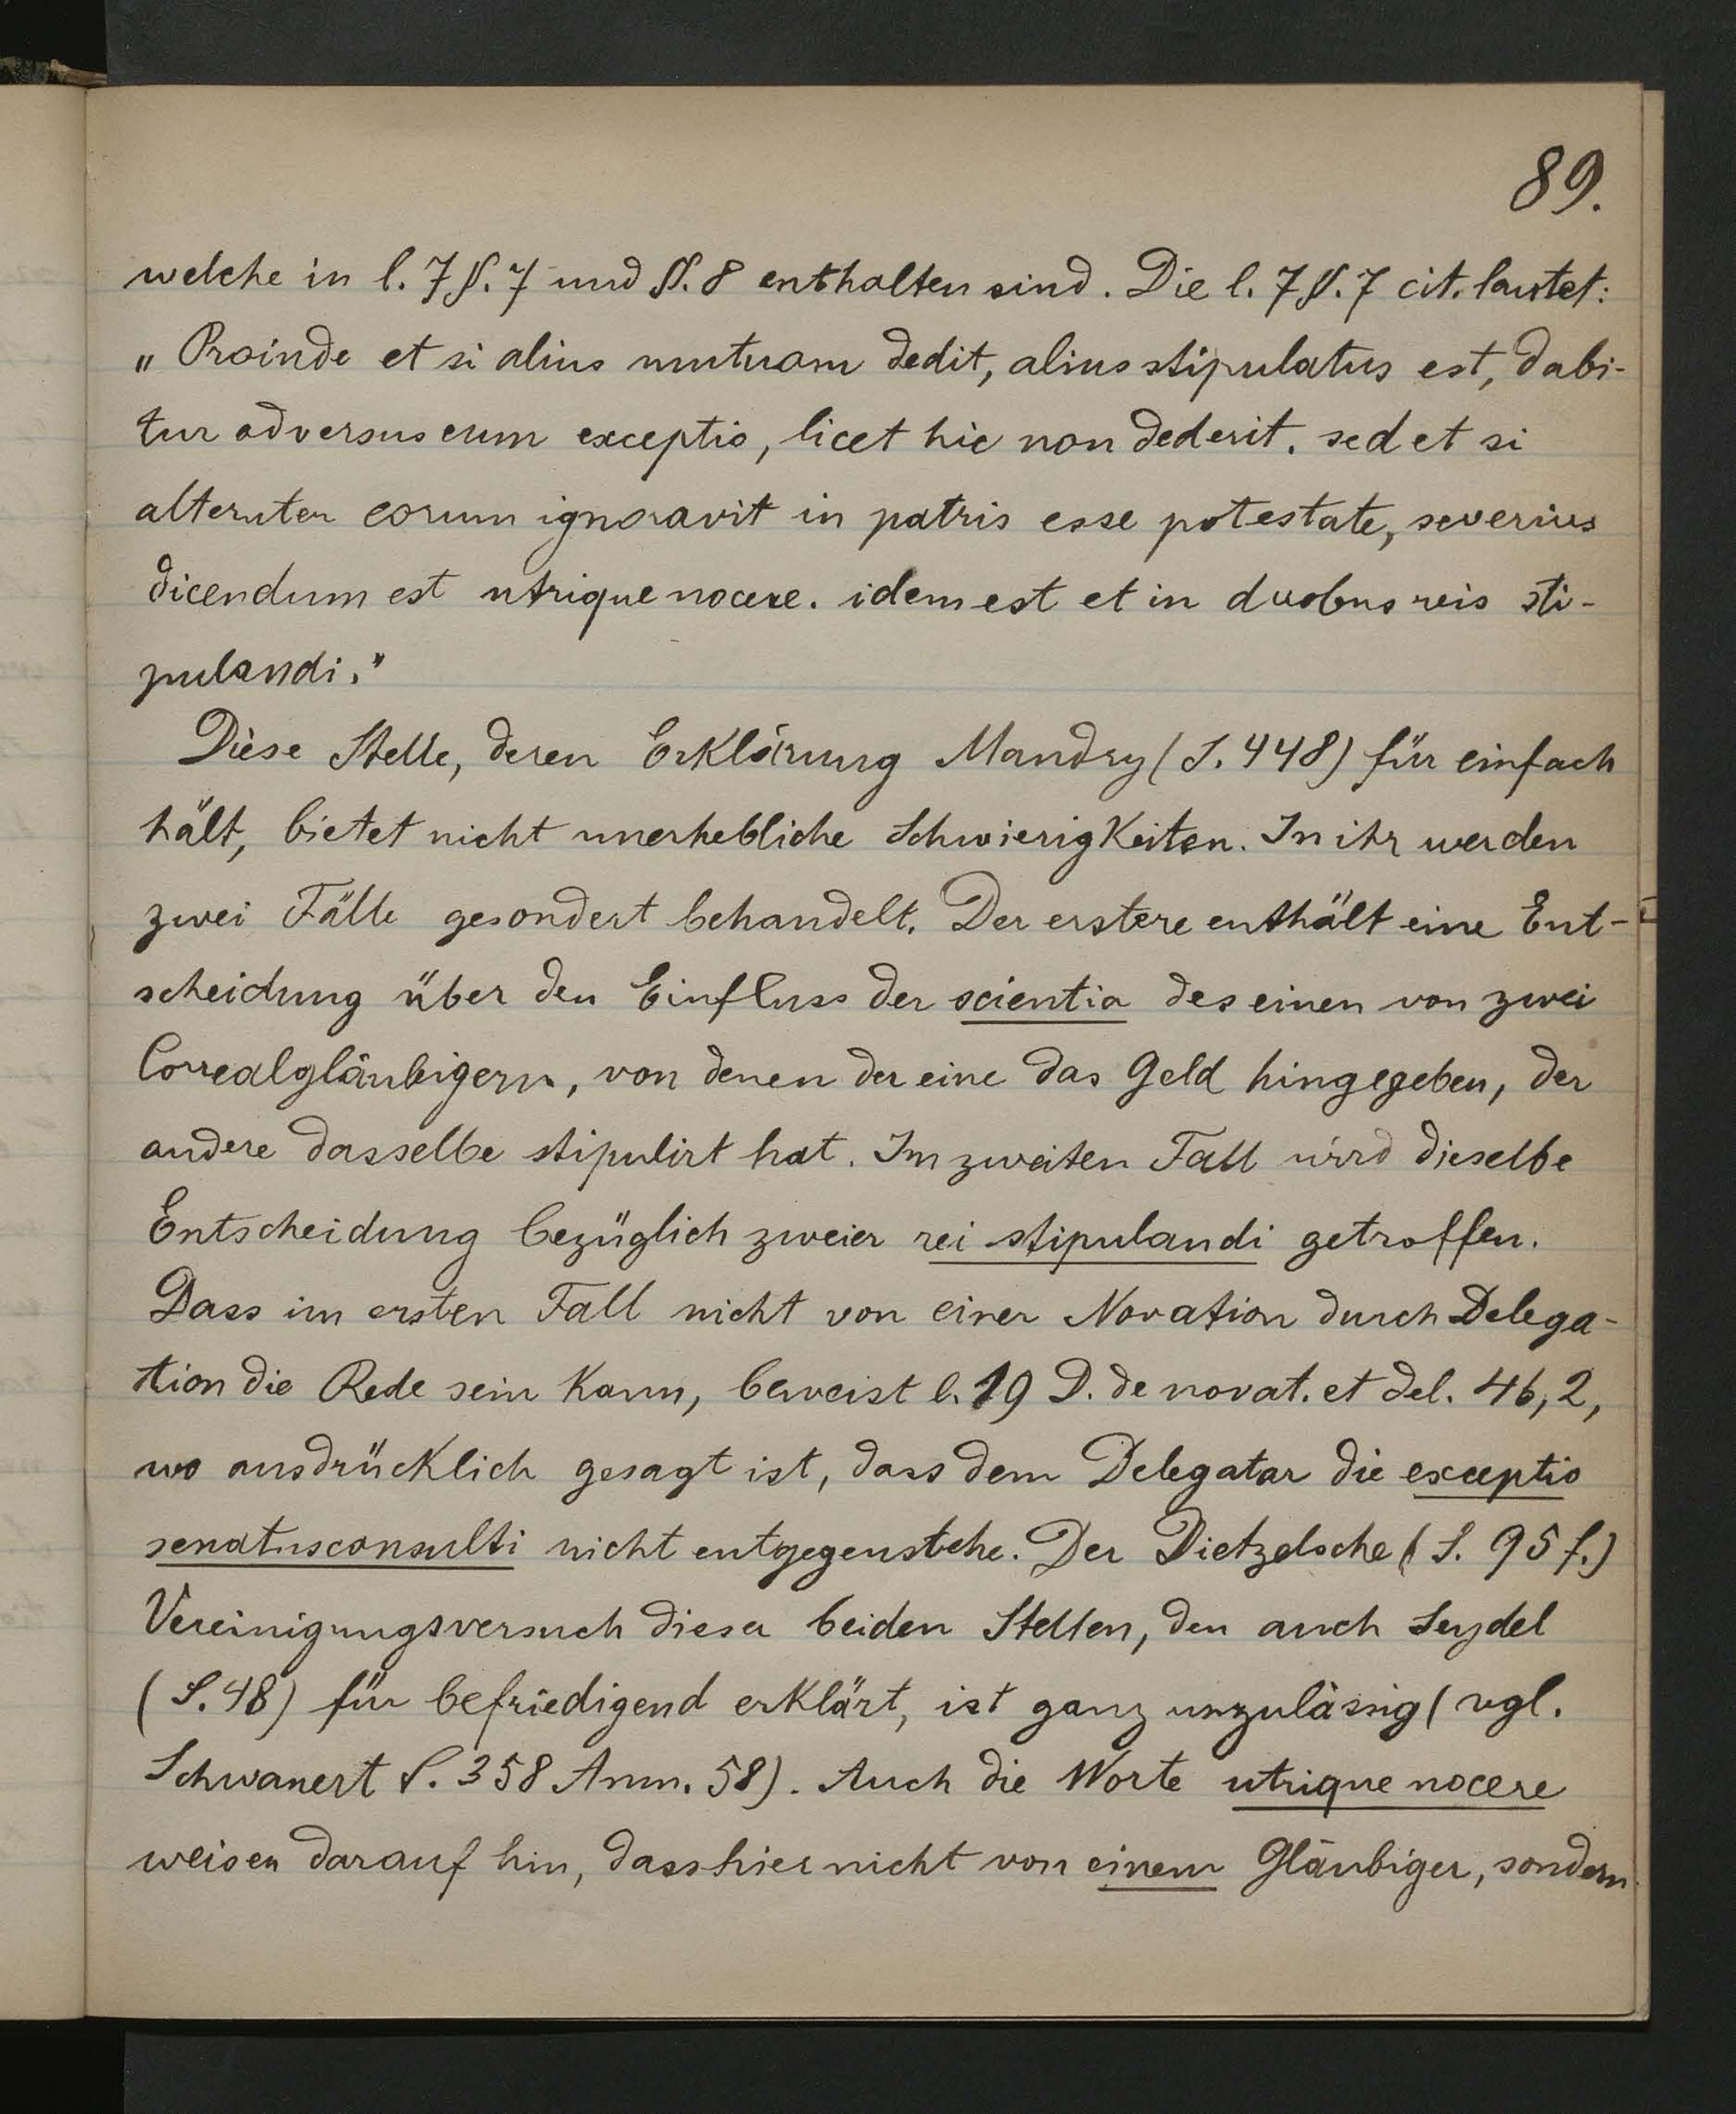 89.
welche in l. 7 §. 7 und §. 8 enthalten sind. Die l. 7 §. 7 cit. lautet:
„Proinde et si alius mutuam dedit, alius stipulatus est, dabi-
tur adversus eum exceptio, licet hic non dederit. sed et si
alteruter eorum ignoravit in patris esse potestate, severius
dicendum est utrique nocere. idem est et in duobus reis sti-
pulandi."
Diese Stelle, deren Erklärung Mandry (S. 448) für einfach
hält, bietet nicht unerhebliche Schwierigkeiten. In ihr werden
zwei Fälle gesondert behandelt. Der erstere enthält eine Ent-
scheidung über den Einfluss der scientia des einen von zwei
Correalgläubigern, von denen der eine das Geld hingegeben, der
andere dasselbe stipulirt hat. Im zweiten Fall wird dieselbe
Entscheidung bezüglich zweier rei stipulandi getroffen.
Dass im ersten Fall nicht von einer Novation durch Delega-
tion die Rede sein kann, beweist l. 19 D. de novat. et del. 46, 2,
wo ausdrücklich gesagt ist, dass dem Delegatar die exceptio
senatusconsulti nicht entgegenstehe. Der Dietzelsche (S. 95 f.)
Vereinigungsversuch dieser beiden Stellen, den auch Seydel
(S. 48) für befriedigend erklärt, ist ganz unzulässig (vgl.
Schwanert S. 358 Anm. 58). Auch die Worte utrique nocere
weisen darauf hin, dass hier nicht von einem Gläubiger, sondern